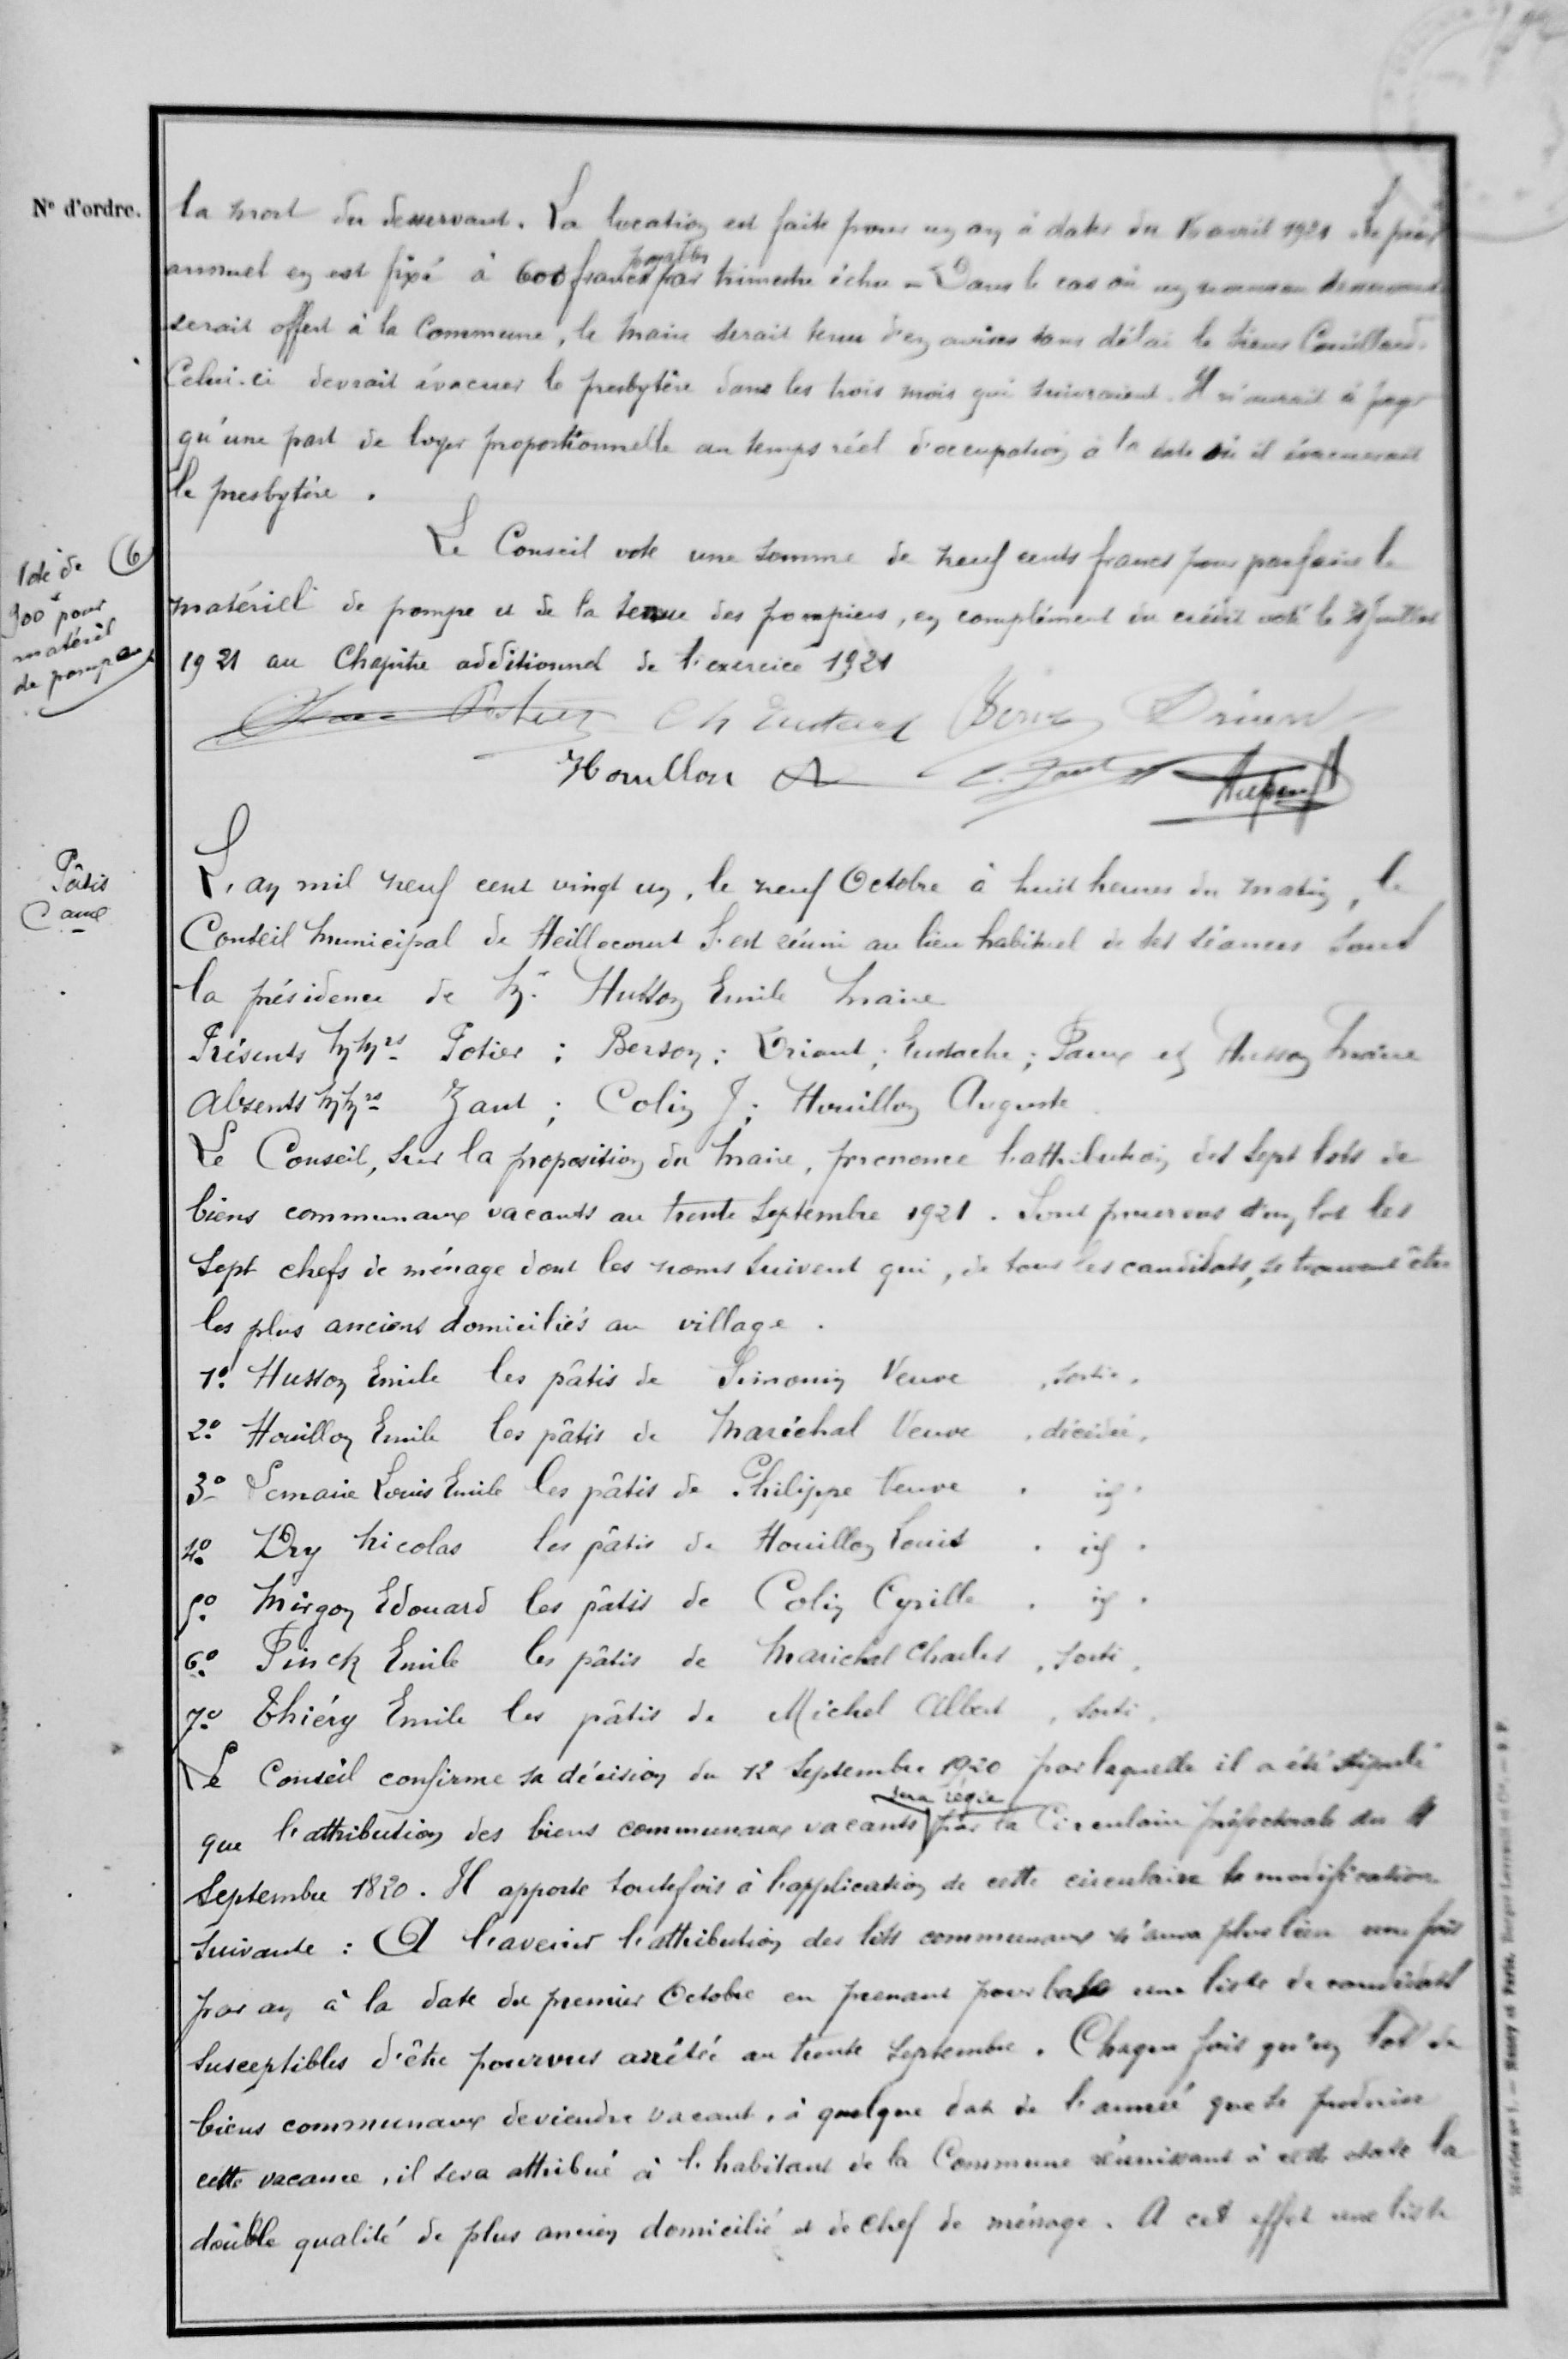 N° d'ordre.
la mort du desservant. La location est faite pour un an à dater du 15 avril 1921 Le prix
annuel en est fixé à 600 francs payables par trimestre échu - Dans le cas où un nouveau desservant
serait offert à la Commune, le Maire serait tenu d'en aviser sans délai le sieur Couillard.
Celui-ci devrait évacuer le presbytère dans les trois mois qui suivraient. Il n'aurait à payer
qu'une part de loyer proportionnelle au temps réel d'occupation à la date où il évacuerait
le presbytère.
Vote de
900f pour
matériel
de pompe
6
Le Conseil vote une somme de neuf cents francs pour parfaire le
matériel de pompe et de la tenue des pompiers, en complément du crédit voté le Juillet
1921 au Chapitre additionnel de l'exercice 1921
Ch Eustache
Houillon
Pâtis
Caux
L'an mil neuf cent vingt un, le neuf Octobre à huit heures du matin, le
Conseil Municipal de Heillecourt s'est réuni au lieu habituel de ses séances sous
la présidence de M. Husson Emile Maire
Présents MMrs Potier ; Berson ; Briant ; Eustache ; Paux et Husson Maire
Absents MMrs Zant ; Colin J ; Houillon Auguste
Le Conseil, sur la proposition du Maire, prononce l'attribution des sept lots de
biens communaux vacants au trente Septembre 1921. Sont pourvus d'un lot les
sept chefs de ménage dont les noms suivent qui, de tous les candidats, se trouvent être
les plus anciens domiciliés au village.
1° Husson Emile les pâtis de Simonin Veuve, sortie,
2° Houillon Emile les pâtis de Maréchal Veuve, décédée,
3° Lemaire Louis Emile les pâtis de Philippe Veuve, id.
4° Dry Nicolas les pâtis de Houillon Louis, id.
5° Mirgon Edouard les pâtis de Colin Cyrille, id.
6° Pinck Emile les pâtis de Maréchal Charles, sorti,
7° Thiéry Emile les pâtis de Michel Albert, sorti,
Le Conseil confirme sa décision du 12 Septembre 1920 par laquelle il a été stipulé
que l'attribution des biens communaux vacants sera régie par la Circulaire préfectorale du
Septembre 1820. Il apporte toutefois à l'application de cette circulaire la modification
suivante : A l'avenir l'attribution des lots communaux n'aura plus lieu une fois
par an à la date du premier Octobre en prenant pour base une liste de candidats
susceptibles d'être pourvus arrêtée au trente Septembre. Chaque fois qu'un lot de
biens communaux deviendra vacant, à quelque date de l'année que se produise
cette vacance, il sera attribué à l'habitant de la Commune réunissant à cette date la
double qualité de plus ancien domicilié et de chef de ménage. A cet effet une liste